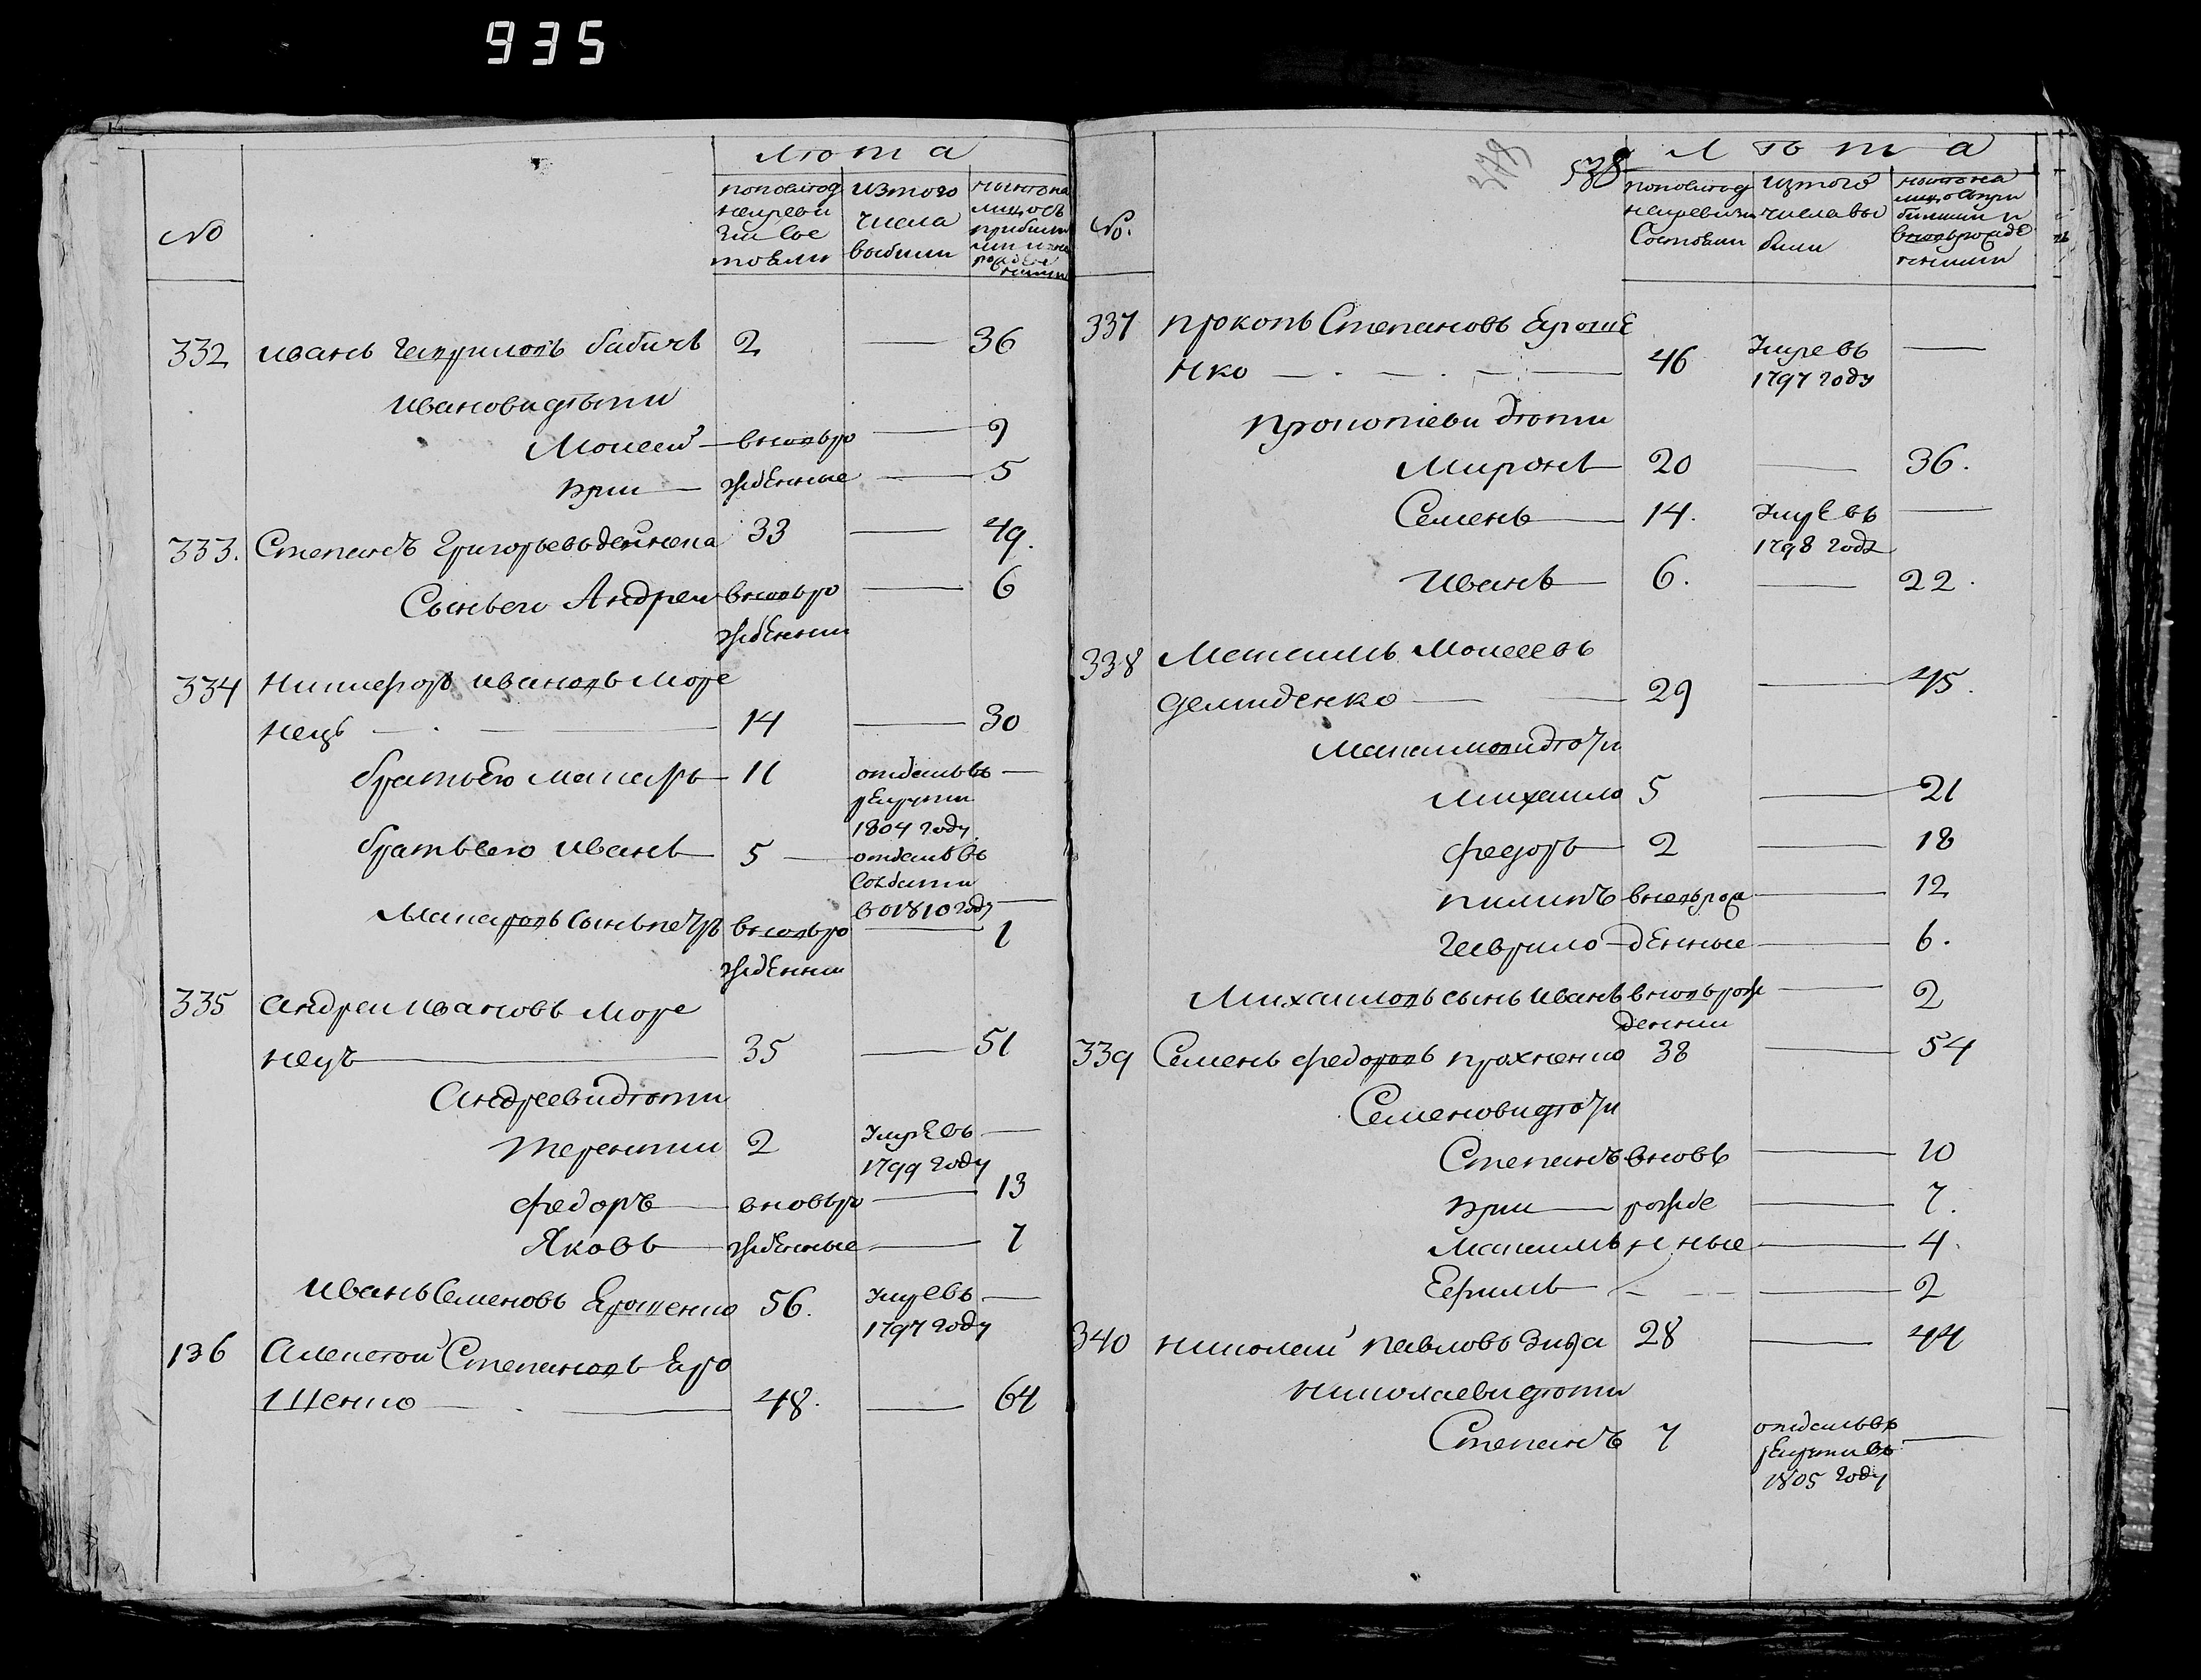 935
Люта
№
пополитод
неиревы
зии сос
тояли
изтого
числа
выбыли
332 иванъ гавриловъ бабичъ 2 — 36
ивановидѣти
Моисей — вновьро — 9
жденные — 5
333. Степанъ григорьевъ 33 — 49.
Сынъего Андреи вновьро — 6
жденни
334 Никифоръ ивановъ море
нецъ — 14 — 30
братъего макаръ — 11 отданъвъ —
рекрути
1804 году.
братъего иванъ — 5 — отданъвъ
Солдати
в01810году —
Макаровъ сынъпетръ вновьро — 1
жденни
335 андреи ивановъ море
нецъ — 35 — 51
Андреевидюти
терентии 2 умревъ —
1799 году
федоръ — вновьро — 13
Яковъ — жденные — 7
иванъСеменовъ Ерошенко 56. умревъ —
1797 году
136 Алексей Степановъ Еро
шенко — 48. — 64
378
538
Лѣта
№.
пополитод
неиревизи
Состояли
изтого
числавы
были
налицо
337 прокопъ Степановъ Ероше
нко — 46 умревъ —
1797 году
Прокопіеви дюти
Миронъ 20 — 36.
Семенъ — 14. умревъ —
1798 году
Иванъ — 6. — 22.
338 Максимъ Моисеевъ
демиденко — 29 — 45.
Максимовидюти
Михаило 5 — 21
федоръ — 2 — 18
пилипъ вновьрож — 12
гаврило — денные — 6.
Михаиловъ сынъ иванъ вновьрож — 2
денни
339 Семенъ федоровъ прохненко 38 — 54
Семеновидюти
Степанъ вновь — 10
рожде — 7.
Максимъ нные — 4.
Ефимъ — 2
340 николаи павловъ 28 — 44
николаевидюти
Степанъ 7 отданъвъ
рекрутивъ —
1805 году